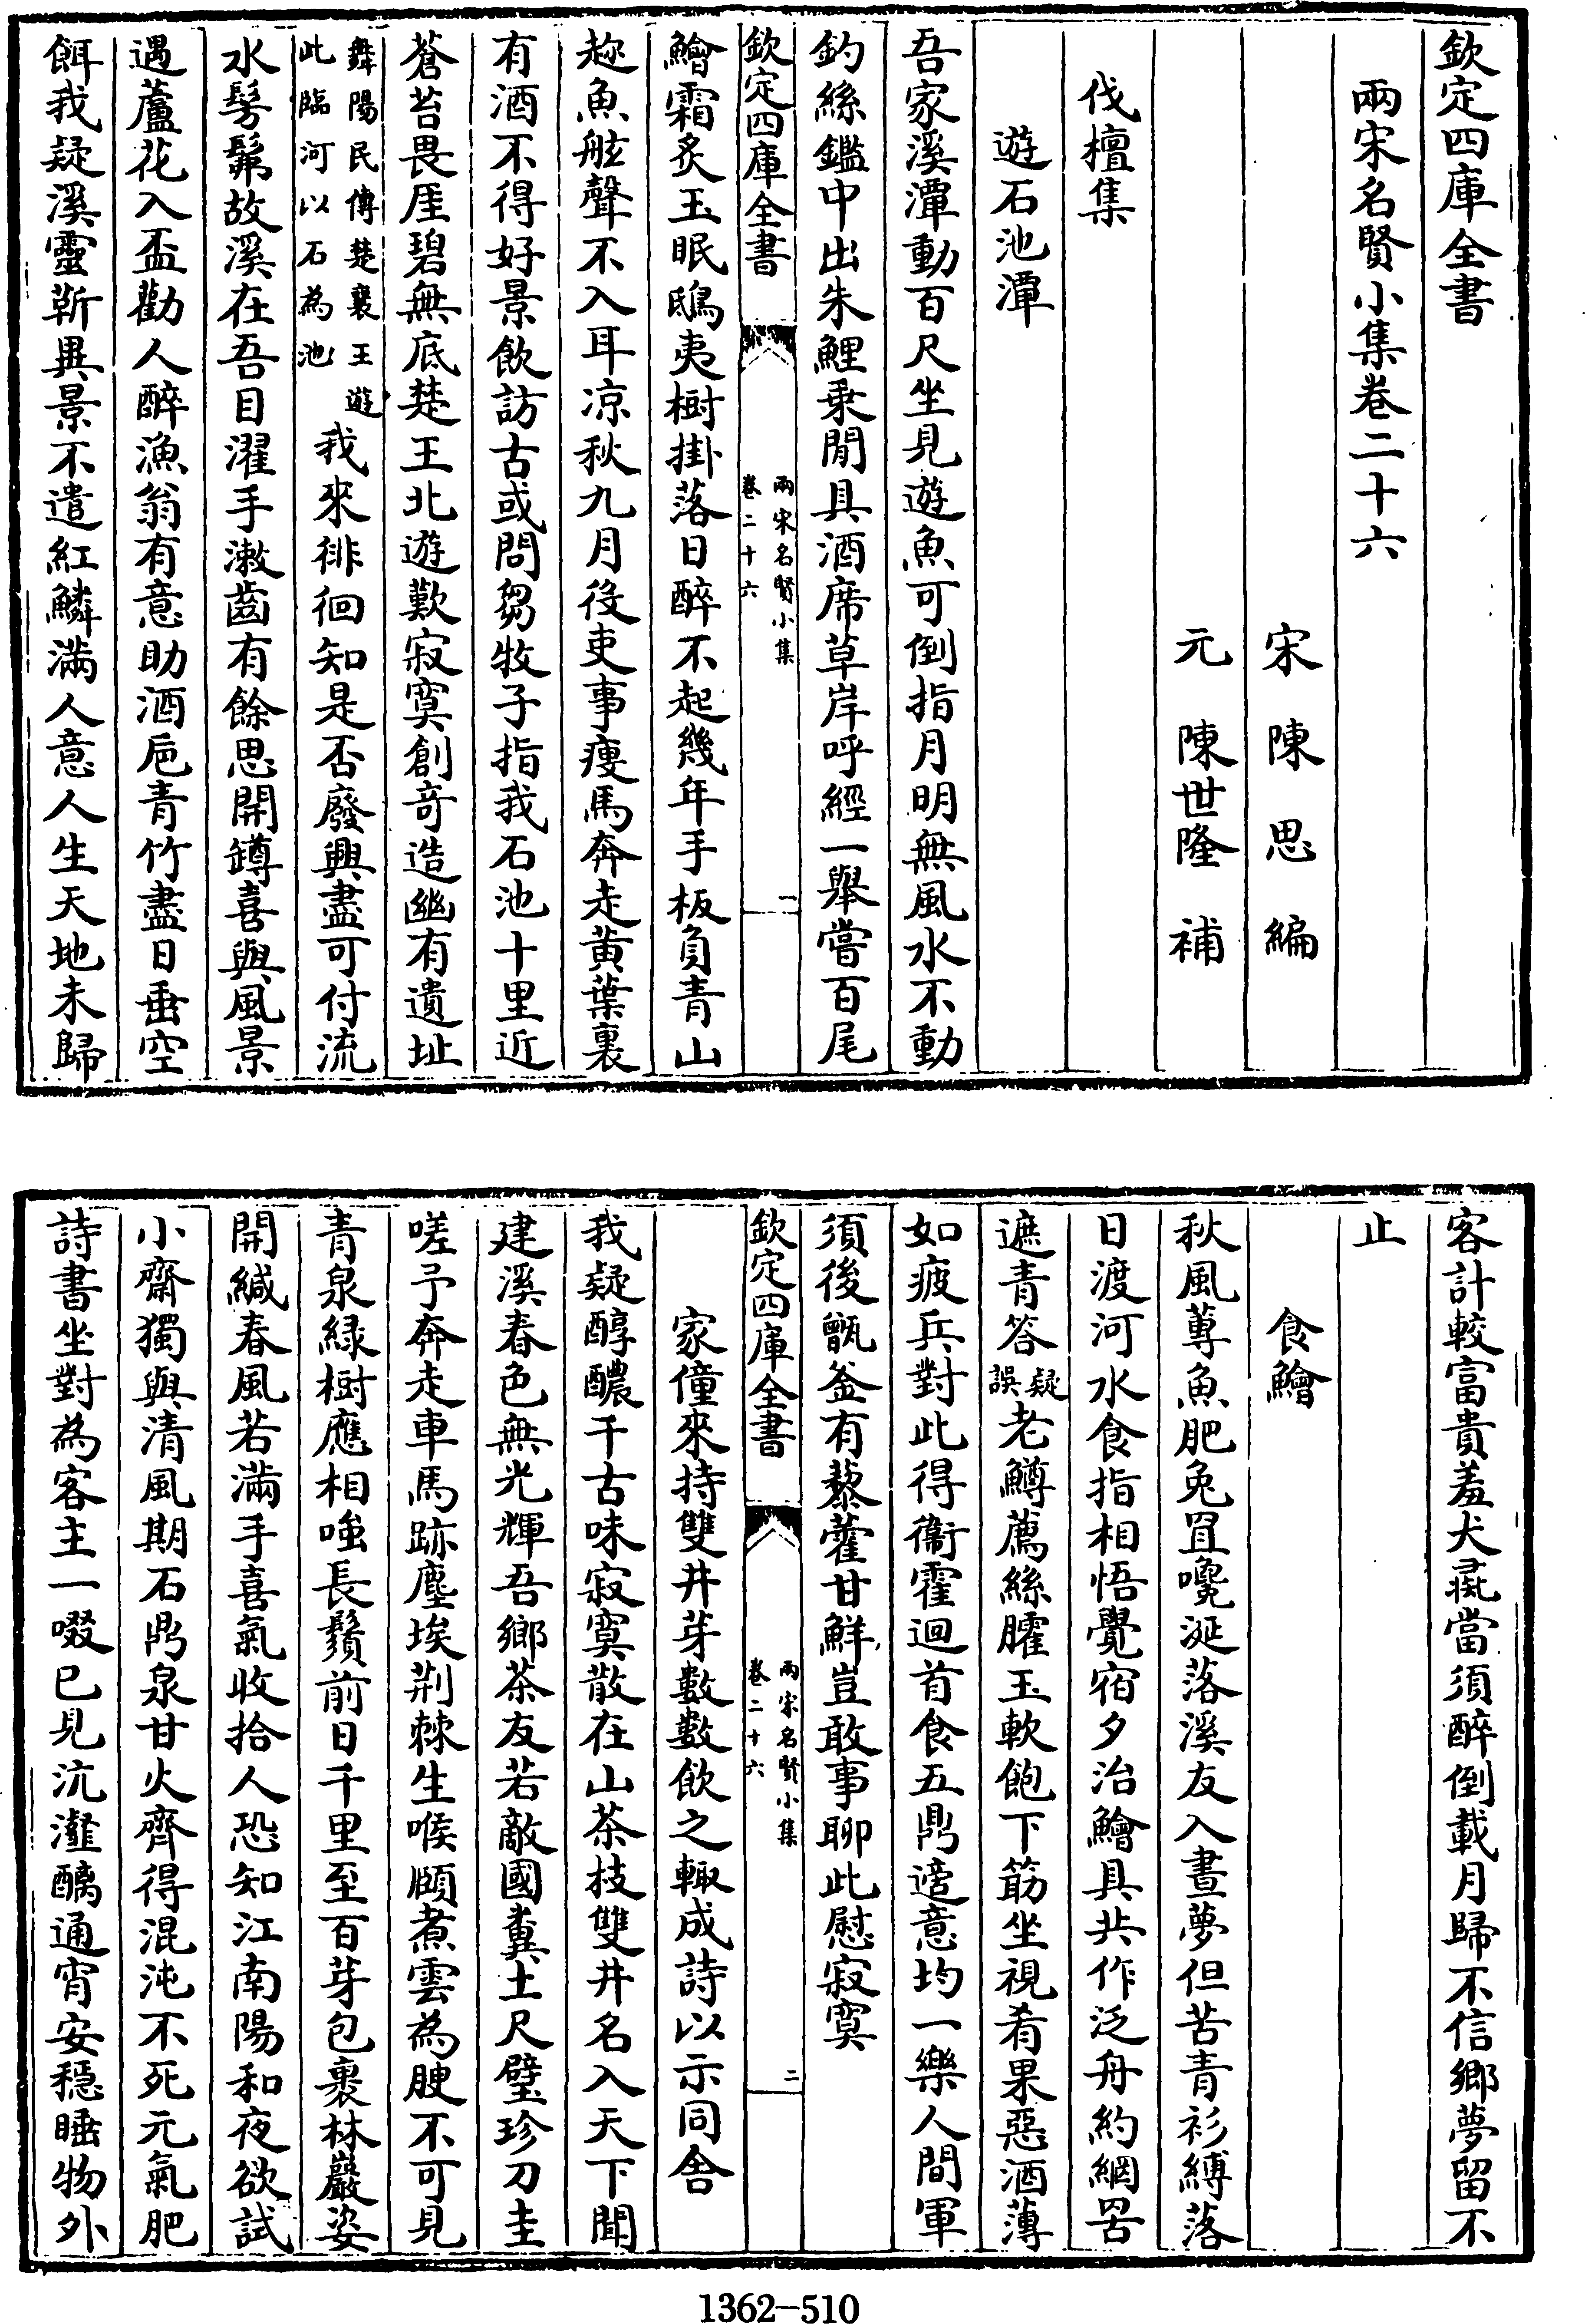 欽定四庫全書
兩宋名賢小集卷二十六
宋 陳思 編
元 陳世隆 補
伐檀集
遊石池潭
吾家溪潭動百尺坐見遊魚可倒指月明無風水不動
釣絲鑑中出朱鯉乗閒具酒席草岸呼經一舉嘗百尾
欽定四庫全書
兩宋名賢小集
卷二十六
一
鱠霜炙玉眠鴟夷樹掛落日醉不起幾年手板負青山
趂魚舷聲不入耳凉秋九月役吏事瘦馬奔走黄葉裏
有酒不得好景飲訪古或問芻牧子指我石池十里近
蒼苔畏厓碧無底楚王北遊歎寂寞創竒造幽有遺址
舞陽民傳楚襄王遊
此臨河以石為池
我來徘徊知是否廢興盡可付流
水髣髴故溪在吾目濯手漱齒有餘思開罇喜與風景
遇蘆花入盃勸人醉漁翁有意助酒巵青竹盡日垂空
餌我疑溪靈靳異景不遣紅鱗滿人意人生天地未歸
客計較富貴羞犬彘當須醉倒載月歸不信鄉夢留不
止
食鱠
秋風蓴魚肥兔罝嚵涎落溪友入晝夢但苦青衫縛落
日渡河水食指相悟覺宿夕治鱠具共作泛舟約網罟
遮青答
疑
誤
老鱒薦絲臛玉軟飽下筯坐視肴果惡酒薄
如疲兵對此得衞霍迴首食五鼎適意均一樂人間軍
須後甑釜有藜藿甘鮮豈敢事聊此慰寂寞
欽定四庫全書
兩宋名賢小集
卷二十六
二
家僮來持雙井芽數數飲之輙成詩以示同舍
我疑醇醲千古味寂寞散在山茶枝雙井名入天下聞
建溪春色無光輝吾鄉茶友若敵國糞土尺璧珍刀圭
嗟予奔走車馬跡塵埃荆棘生喉頤煮雲為腴不可見
青泉綠樹應相嗤長鬚前日千里至百芽包裹林巖姿
開緘春風若滿手喜氣收拾人恐知江南陽和夜欲試
小齋獨與清風期石鼎泉甘火齊得混沌不死元氣肥
詩書坐對為客主一啜已見沆瀣醨通宵安穩睡物外
1362—510